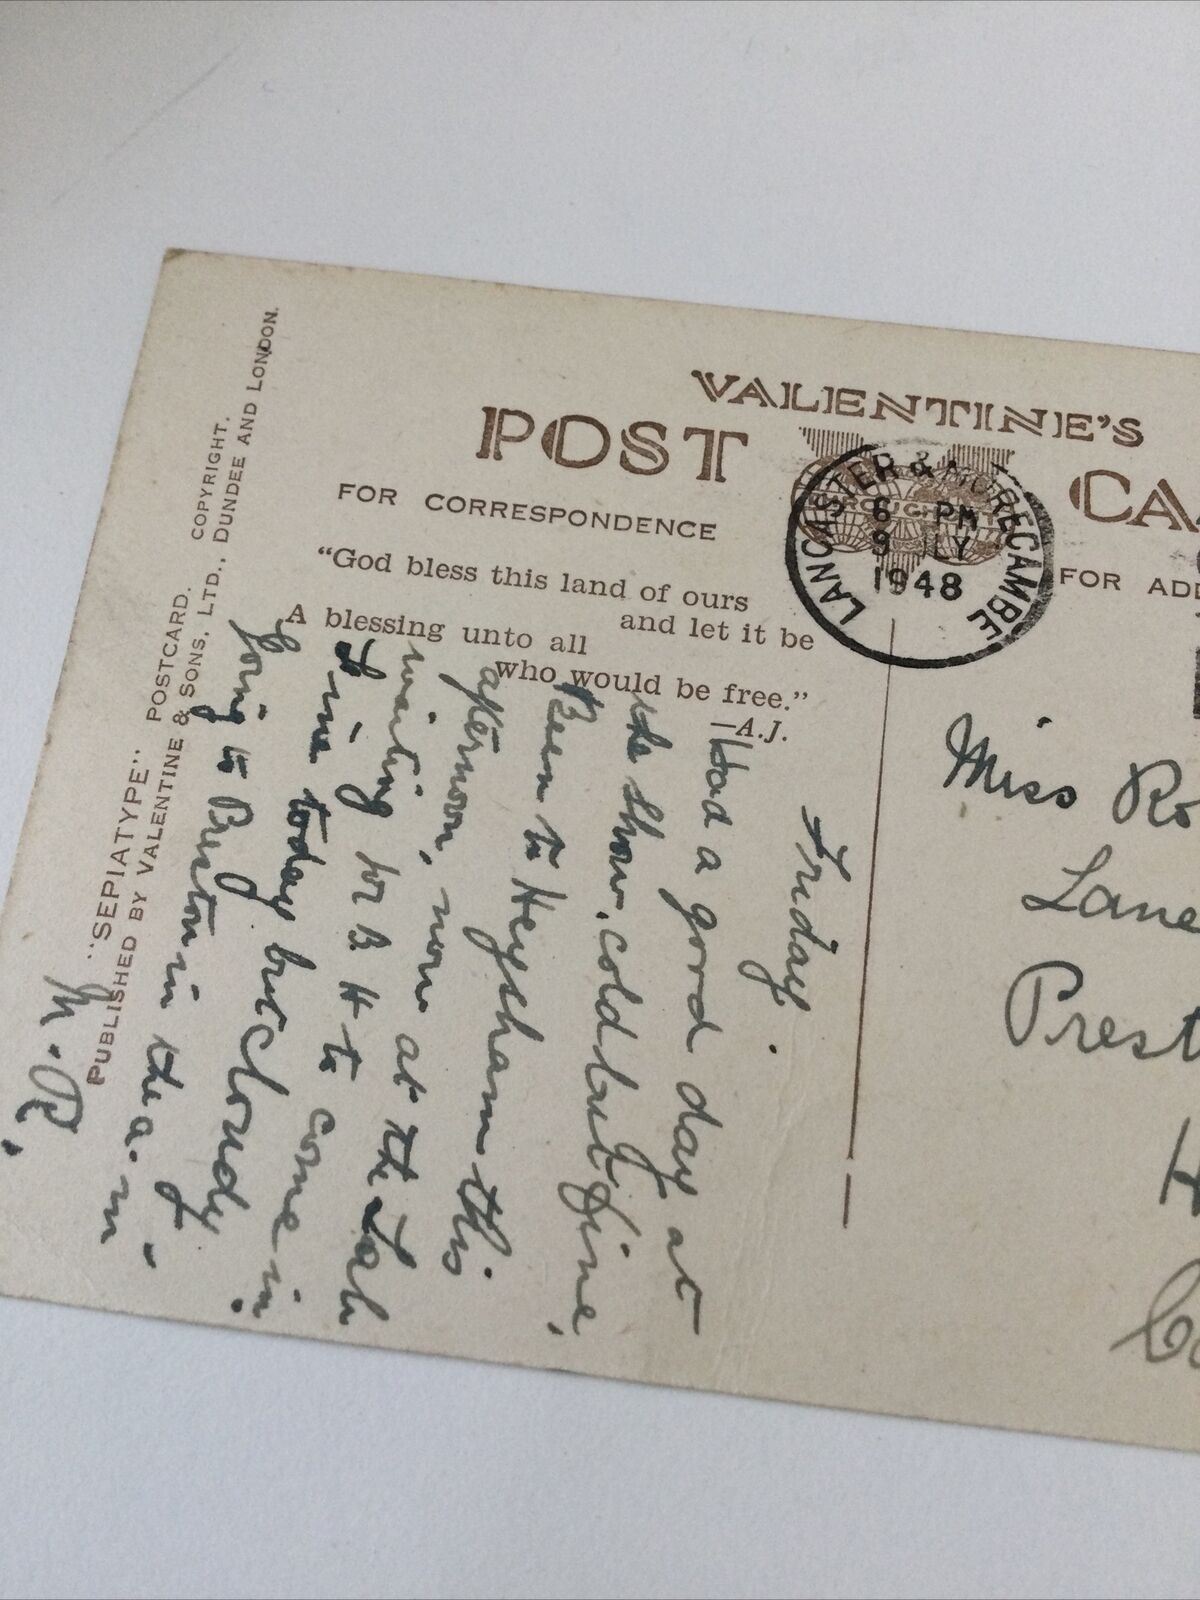 VALENTINE'S
POST CA
FOR CORRESPONDENCE
FOR ADD
"God bless this land of ours
and let it be
A blessing unto all
who would be free."
—A.J.
LANCASTER & MORECAMBE
6 PM
9 JLY
1948
"SEPIATYPE" POSTCARD. COPYRIGHT.
PUBLISHED BY VALENTINE & SONS, LTD., DUNDEE AND LONDON.
Friday.
Had a good day at
the Show, cold but fine,
Been to Heysham this
afternoon, now at the
waiting for B H to come in
fine today but cloudy.
Going to Preston in the a.m.
M.R.
Miss Ro
Lane
Prest
H